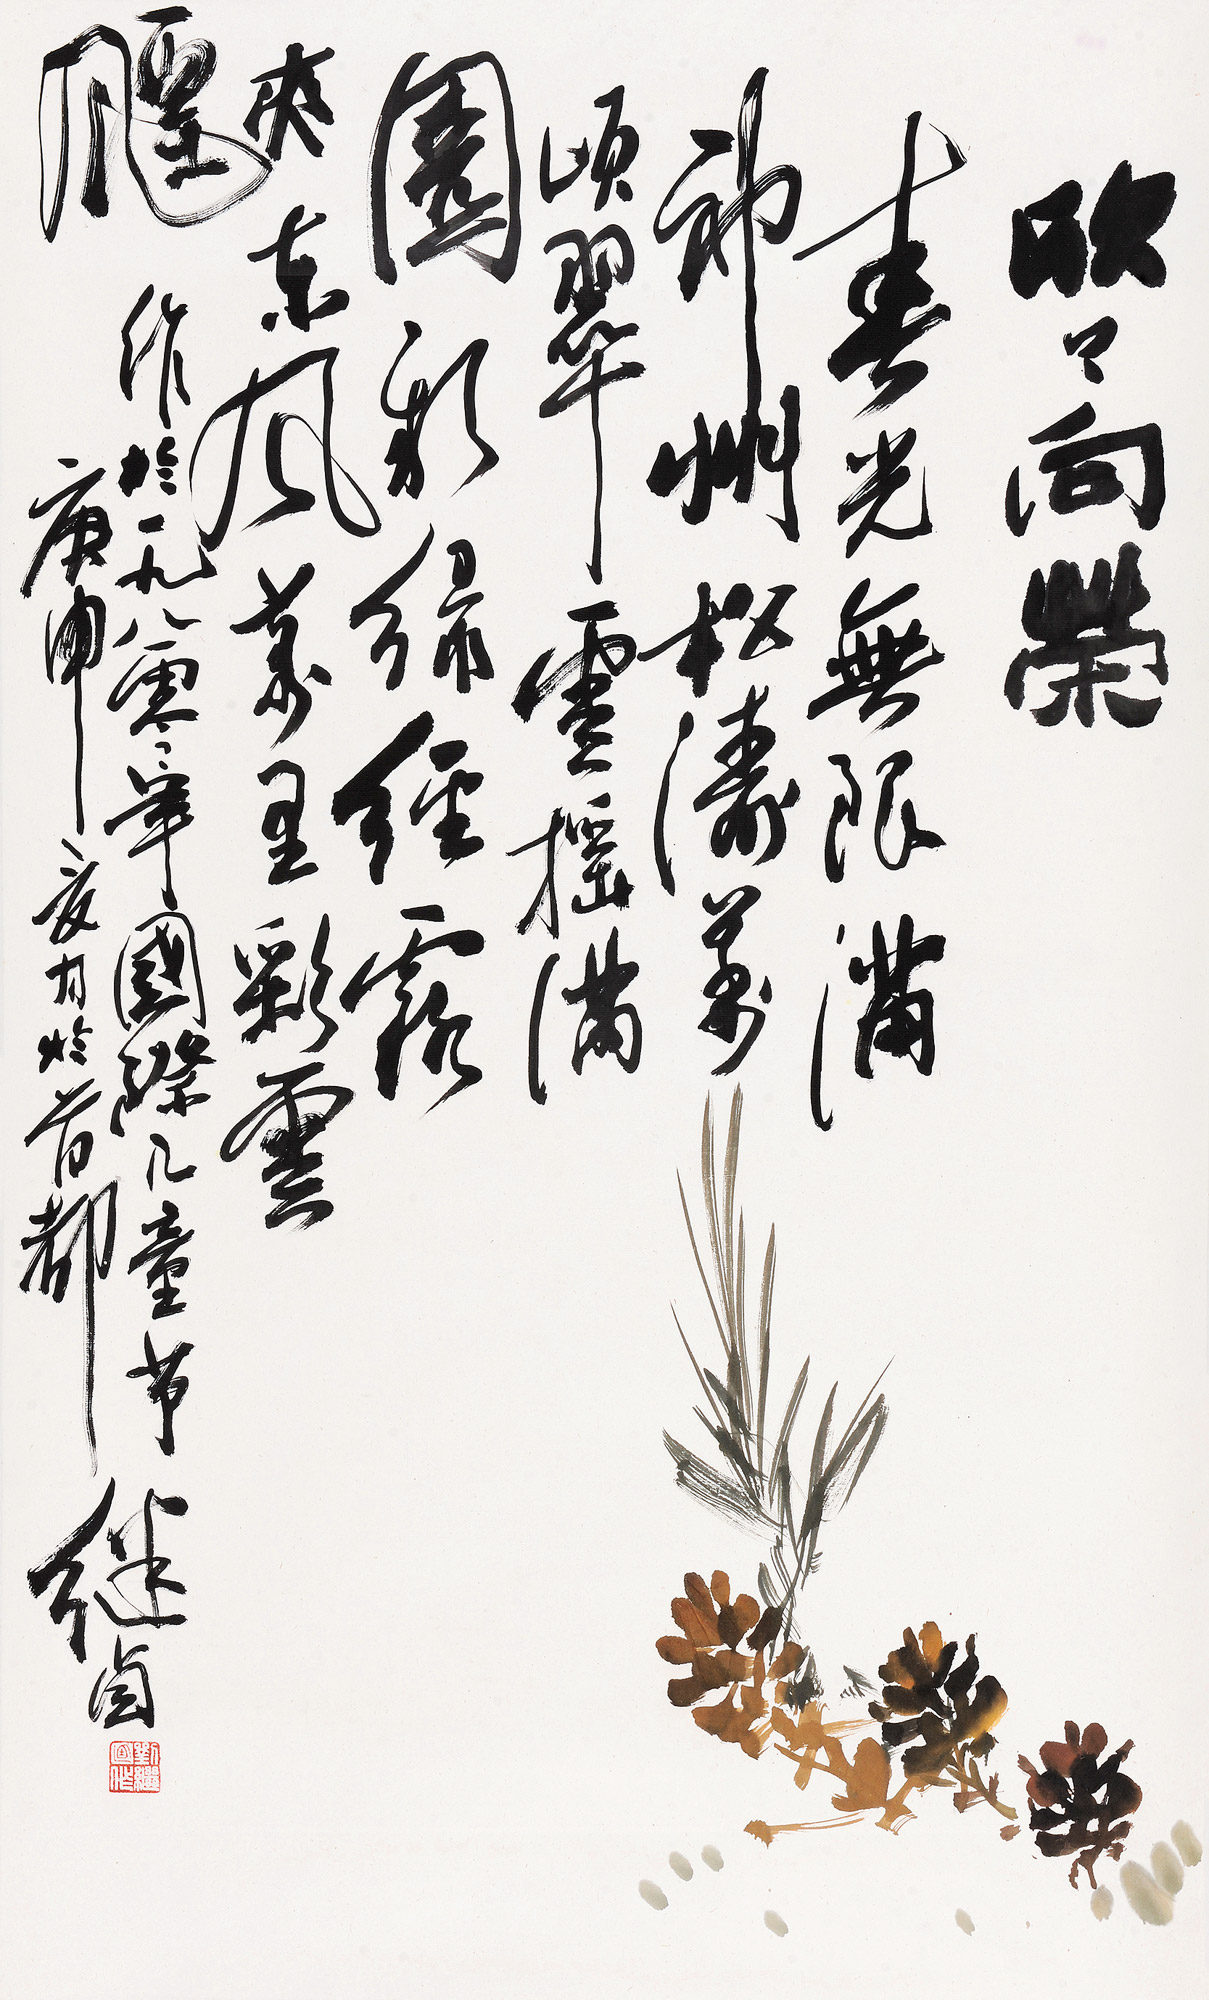 欣々向榮
春光無限滿
神州松濤萬
頃翠雲搖滿
園新綠經露
爽東風萬里彩雲
飄
作於一九八零年國際儿童节
庚申夏月於首都
继卣
劉繼卣作